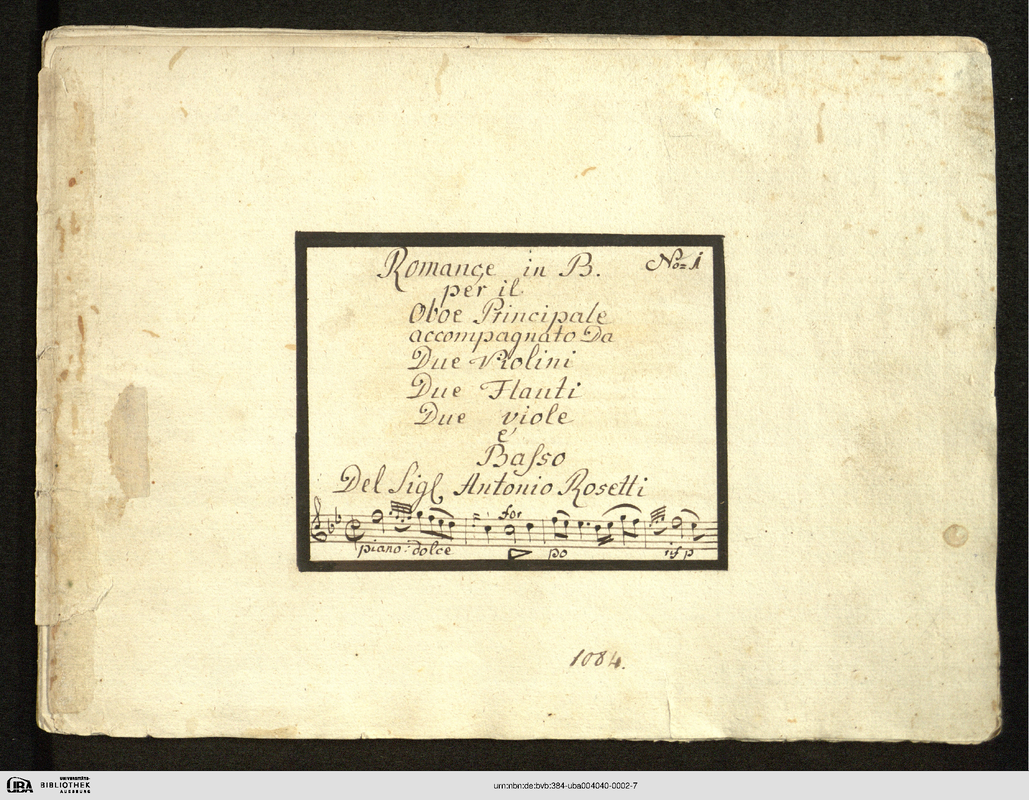 Romance in B. No= 1
per il
Oboe Principale
accompagnato Da
Due Violini
Due Flauti
Due viole
e'
Basso
Del Sigl Antonio Rosetti
for
piano: dolce po rif p
1084.
UBA UNIVERSITÄTS-
BIBLIOTHEK
AUGSBURG
urn:nbn:de:bvb:384-uba004040-0002-7